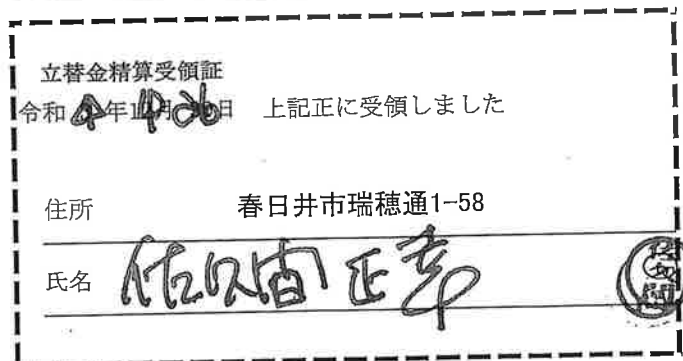 立替金精算受領証
令和 年1 月 日 上記正に受領しました
住所 春日井市瑞穂通1-58
氏名 佐久間 正幸